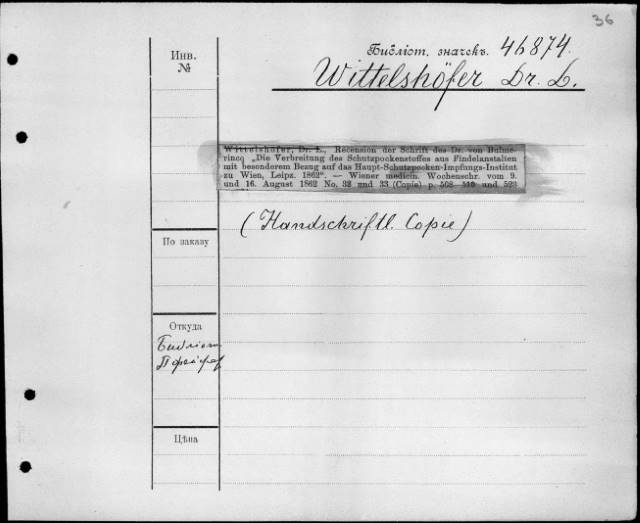 36
Инв.
№
Библіот. значекъ. 46874.
Wittelshöfer Dr. L.
Wittelshöfer, Dr. L., Recension der Schrift des Dr. von Bulme-
rincq „Die Verbreitung des Schutzpockenstoffes aus Findelanstalten
mit besonderem Bezug auf das Haupt-Schutzpocken-Impfungs-Institut
zu Wien, Leipz. 1862“. — Wiener medicin. Wochenschr. vom 9.
und 16. August 1862 No. 32 und 33 (Copie) p. 508 510 und 523
(Handschriftl. Copie)
По заказу
Откуда
Библіот
Пфейфер
Цѣна